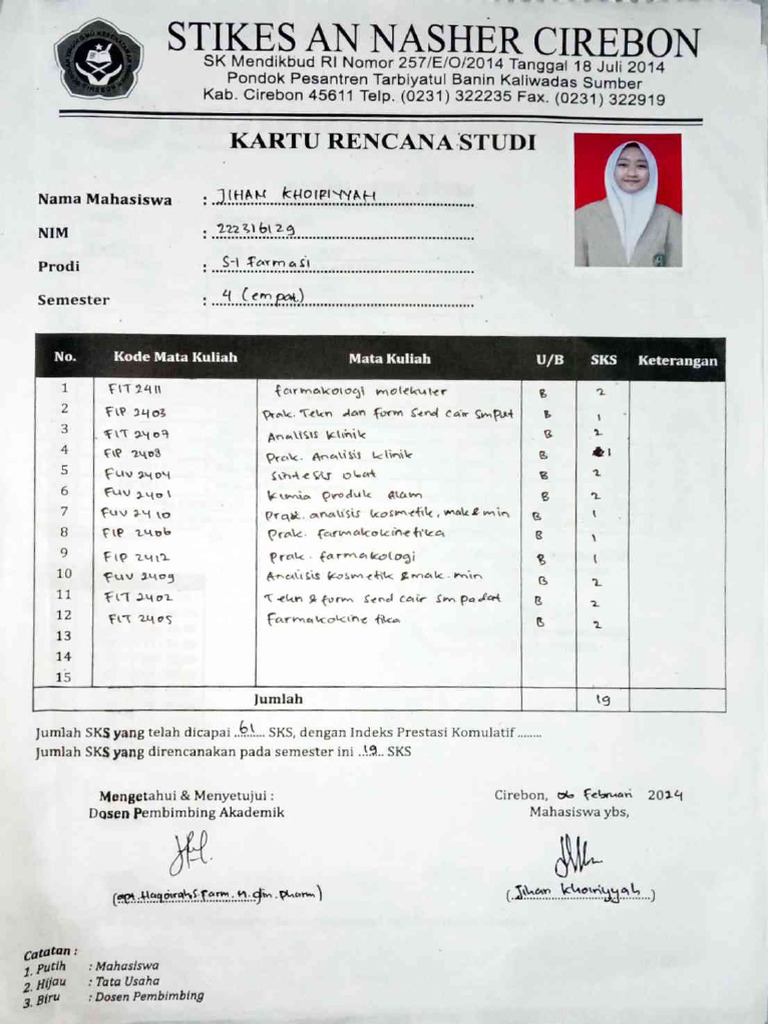 STIKES AN NASHER CIREBON
SK Mendikbud RI Nomor 257/E/O/2014 Tanggal 18 Juli 2014
Pondok Pesantren Tarbiyatul Banin Kaliwadas Sumber
Kab. Cirebon 45611 Telp. (0231) 322235 Fax. (0231) 322919
KARTU RENCANA STUDI
Nama Mahasiswa : JIHAN KHOIRIYYAH
NIM : 222316129
Prodi : S-1 Farmasi
Semester : 4 (empat)
No. Kode Mata Kuliah Mata Kuliah U/B SKS Keterangan
1 FIT 2411 farmakologi molekuler B 2
2 FIP 2403 prak. Tekn dan form Send cair smput B 1
3 FIT 2407 Analisis klinik B 2
4 FIP 2408 Prak. Analisis klinik B 1
5 FUV 2404 Sintesis obat B 2
6 FUV 2401 kimia produk alam B 2
7 FUV 2410 Prak. analisis kosmetik, mak & min B 1
8 FIP 2406 Prak. farmakokinetika B 1
9 FIP 2412 Prak. farmakologi B 1
10 FUV 2409 Analisis kosmetik & mak. min B 2
11 FIT 2402 Tekn & form Send cair sm padat B 2
12 FIT 2405 Farmakokinetika B 2
13
14
15
Jumlah 19
Jumlah SKS yang telah dicapai ..61.... SKS, dengan Indeks Prestasi Komulatif ........
Jumlah SKS yang direncanakan pada semester ini ..19.. SKS
Mengetahui & Menyetujui :
Dosen Pembimbing Akademik
Cirebon, 06 Februari 2024
Mahasiswa ybs,
(Jihan Khoiriyyah)
Catatan :
1. Putih : Mahasiswa
2. Hijau : Tata Usaha
3. Biru : Dosen Pembimbing